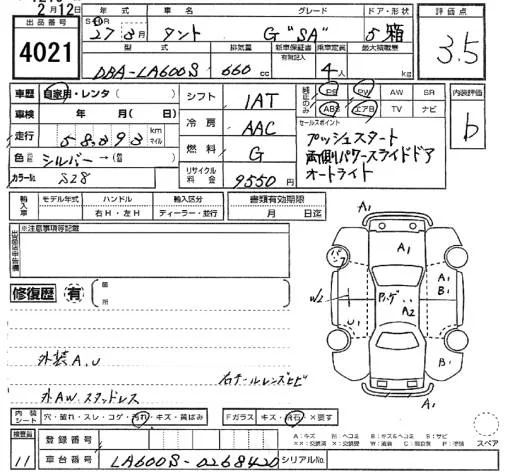 2月12日
出品番号
4021
年式 車名 グレード ドア・形状
S・H 27年 3月 タント G "SA" 5 箱
型式 排気量 新車保証書 有無記入 乗定員 最大積載量
DBA-LA600S 660 cc 4人 kg
評価点
3.5
車歴 自家用・レンタ( )
車検 年 月( )
走行 58,393 km マイル
色 シルバー→(替)( 色)
カラーNo. S28
シフト 1AT
冷房 AAC
燃料 G
リサイクル料金 9550円
純正のみ
PS PW AW SR
ABS エアB TV ナビ
セールスポイント
プッシュスタート
両側パワースライドドア
オートライト
内装評価
b
輸入車 モデル年式 ハンドル 輸入区分
右H・左H ディーラー・並行
書類有効期限
月 日迄
※注意事項等記載
修復歴 有 箇所
外装A,U
右テールレンズヒビ
外AWスタッドレス
A1
A1
パンク
A1
B1
W2
U1
A2
B1
A1
スペア
内装シート 穴・破れ・スレ・コゲ・汚れ・キズ・黄ばみ
Fガラス キズ・飛石・×要す
検査員
11
登録番号
車台番号 LA600S-0268420 シリアルNo.